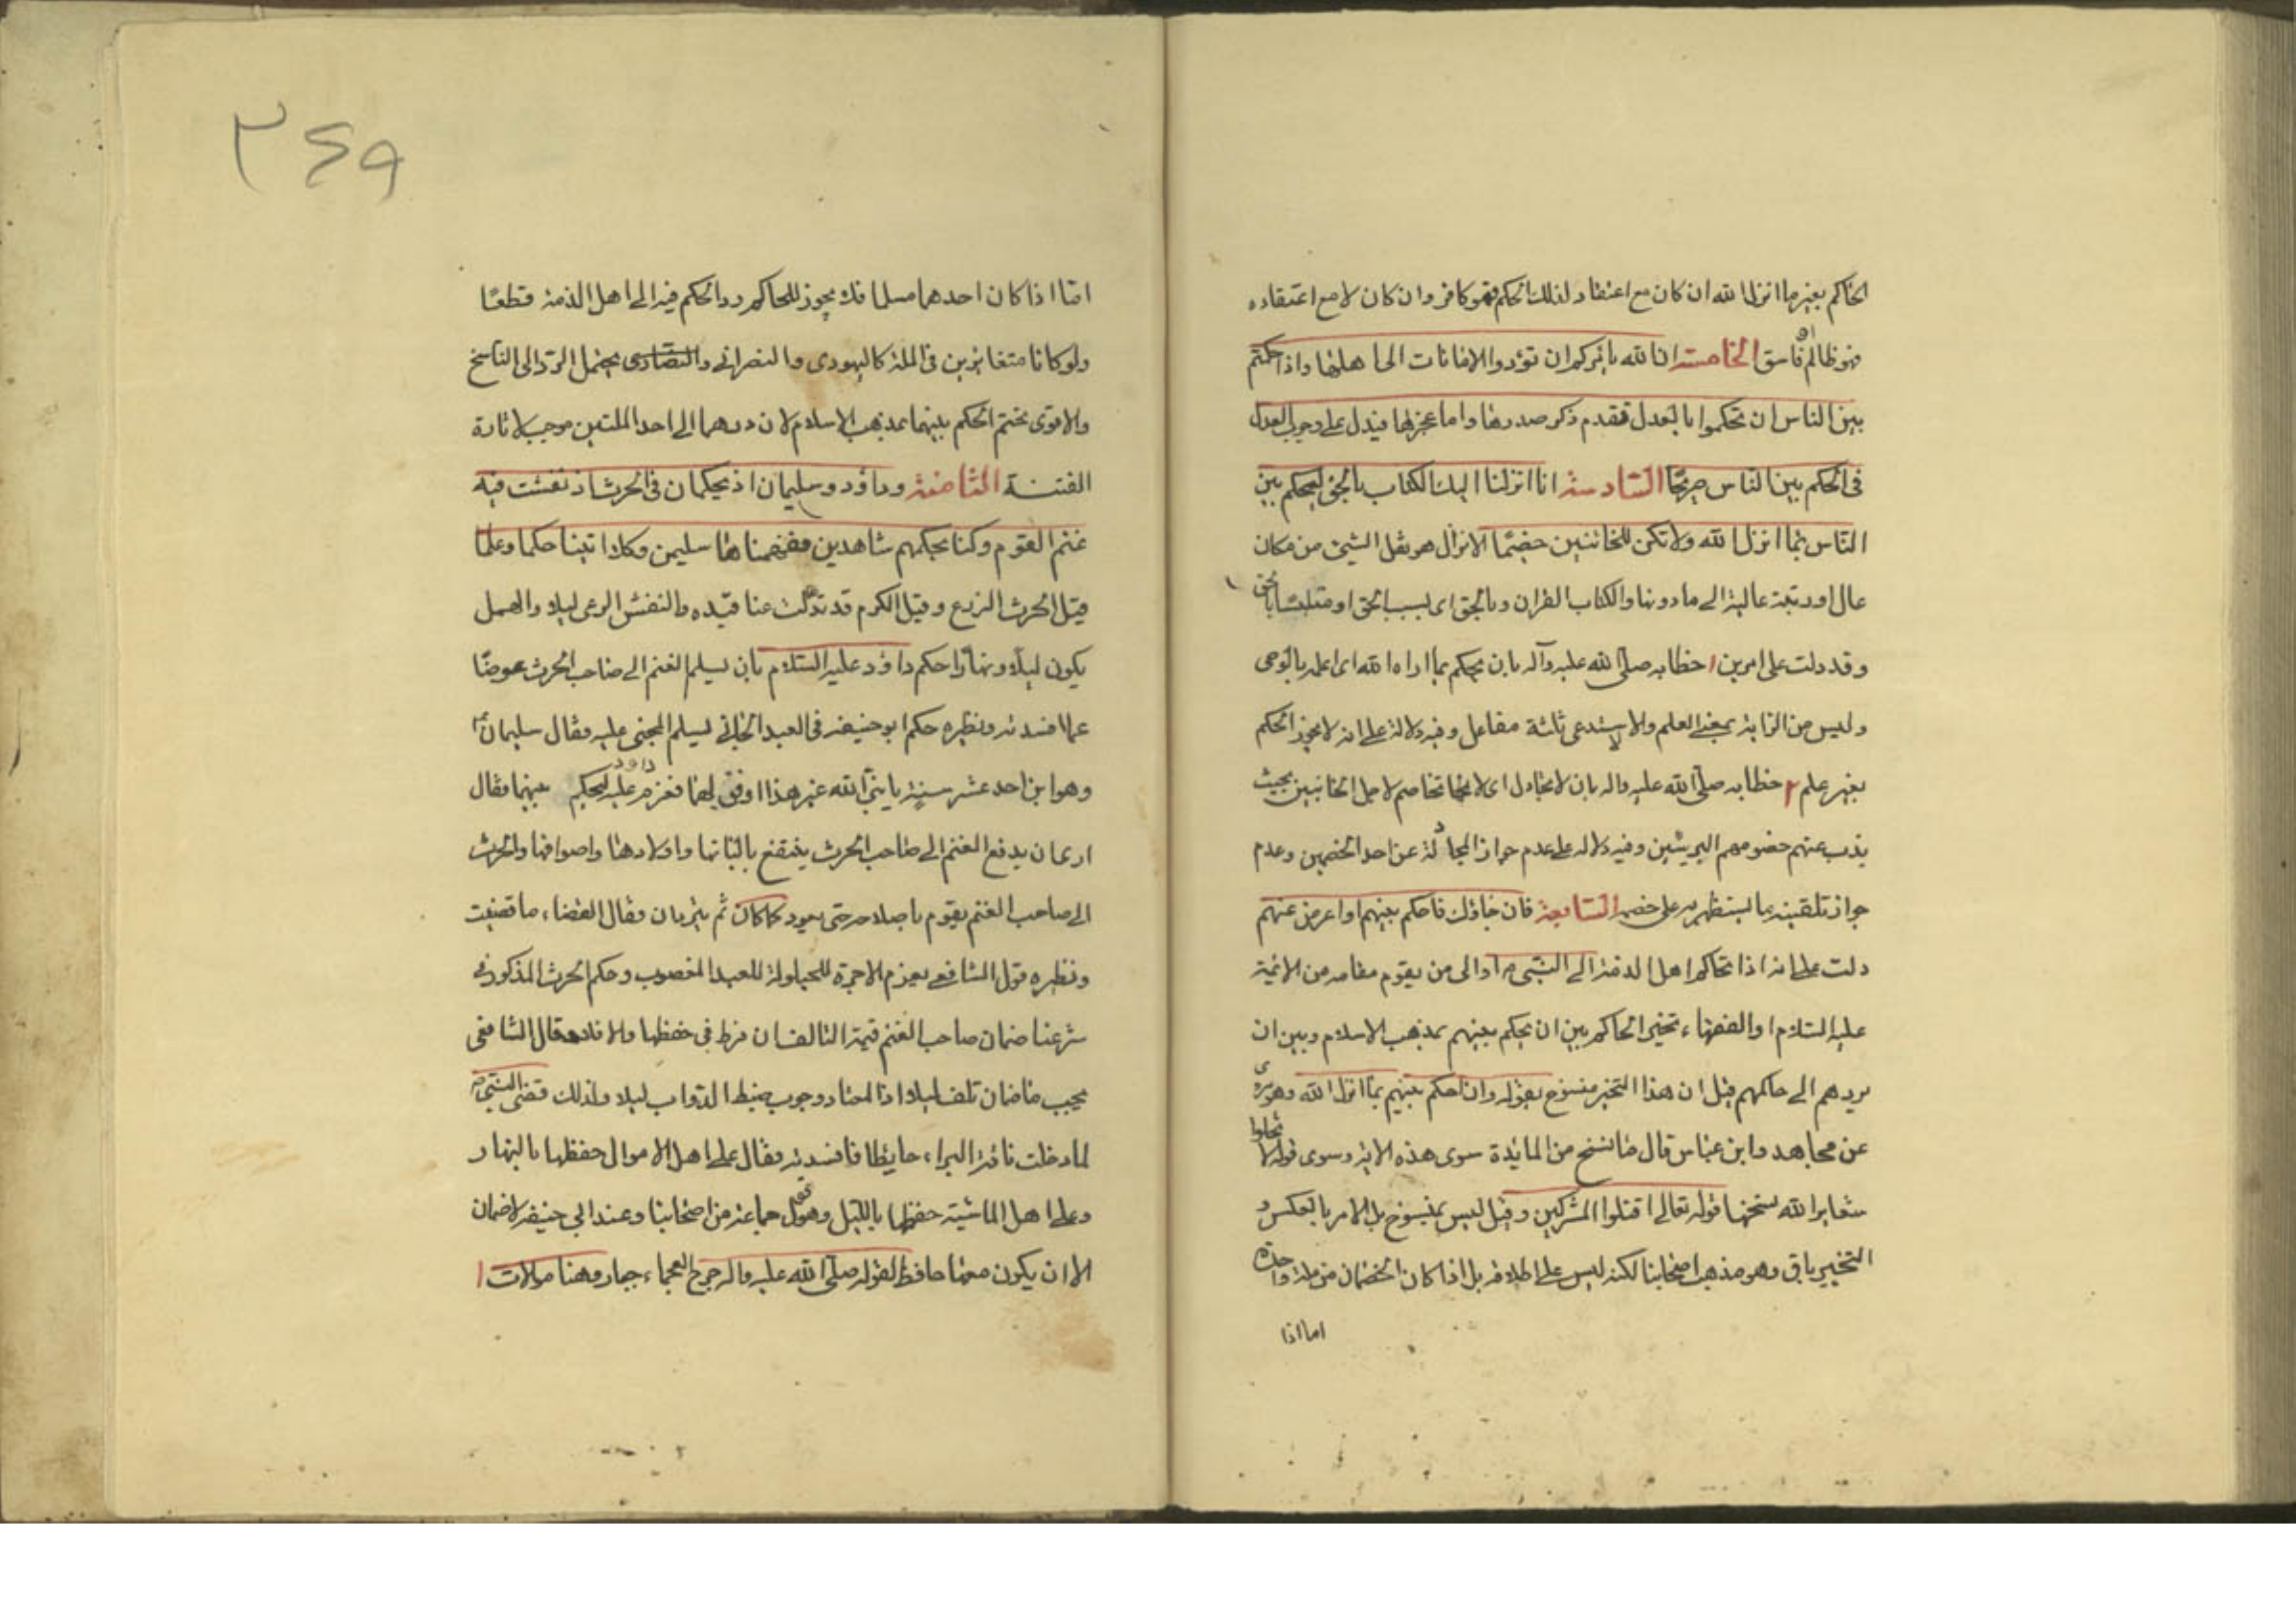 الحاكم بغير ما انزل الله ان كان مع اعتقاد لذلك الحكم فهو كافر وان كان لا مع اعتقاده
فهو ظالم او فاسق الخامسة ان الله يامركم ان تؤدوا الامانات الى اهلها واذا حكمتم
بين الناس ان تحكموا بالعدل فقدم ذكر صدرها واما عجزها فيدل على وجوب العدل
فى الحكم بين الناس صريحا السادسة انا انزلنا اليك الكتاب بالحق لتحكم بين
الناس بما انزل الله ولا تكن للخائنين خصيما الانزال هو نقل الشئ من مكان
عال او رتبة عالية الى ما دونها والكتاب القران وبالحق اى بسبب الحق او متلبسا بالحق
وقد دلت على امرين ١ خطابه صلى الله عليه وآله بان يحكم بما اراه الله اى اعلمه بالوحى
وليس من الراية بمعنى العلم والا لاستدعى ثلثة مفاعل وفيه دلالة على انه لا يجوز الحكم
بغير علم ٢ خطابه صلى الله عليه واله بان لا يجادل اى لا يخاتخاصم لاجل الخائنين بحيث
يذب عنهم خصومهم البريئين وفيه دلاله على عدم جواز المجادلة عن احد الخصمين وعدم
جواز تلقينه بما يستظهر به على خصمه السابعة فان جاؤك فاحكم بينهم او اعرض عنهم
دلت على انه اذا تحاكم اهل الذمة الى النبى ص او الى من يقوم مقامه من الائمة
عليه السلام او الفقهاء تخير الحاكم بين ان يحكم بينهم بمذهب الاسلام وبين ان
يردهم الى حاكمهم قيل ان هذا التخير منسوخ بقوله وان احكم بينهم بما انزل الله وهو مروى
عن مجاهد وابن عباس قال ما نسخ من المائدة سوى هذه الاية وسوى قوله لا تحلوا
شعاير الله نسخها قوله تعالى اقتلوا المشركين وقيل ليس بمنسوخ بل الامر بالعكس و
التخيير باق وهو مذهب اصحابنا لكنه ليس على اطلاقه بل اذا كان الخصمان من ملة واحدة
اما اذا
٣٤٩
امّا اذا كان احدهما مسلما فلا يجوز للحاكم رد الحكم فيه الى اهل الذمة قطعًا
ولو كانا متغايرين فى الملة كاليهودى والنصرانى والنصارى يحتمل الرد الى الناسخ
والاقوى تحتم الحكم بينهما بمذهب الاسلام لان ردهما الى احد الملتين موجب لاثارة
الفتنة الثامنة وداود وسليمان اذ يحكمان فى الحرث اذ نفشت فيه
غنم القوم وكنا لحكمهم شاهدين ففهمناها سليمن وكلا اتينا حكما وعلما
قيل الحرث الزرع وقيل الكرم قد تدلت عناقيده والنفش الرعى ليلا والهمل
يكون ليلا ونهارا حكم داود عليه السلام بان يسلم الغنم الى صاحب الحرث عوضا
عما افسدته ونظيره حكم ابو حنيفه فى العبد الجانى يسلم المجنى عليه وقال سليمان ع
وهو ابن احد عشر سنة يا نبى الله غير هذا اوفق لهما فعزم داود عليه ليحكم بينهما فقال
ارى ان يدفع الغنم الى صاحب الحرث ينتفع بالبانها واولادها واصوافها والحرث
الى صاحب الغنم يقوم باصلاحه حتى يعود كما كان ثم يترادان فقال القضاء ما قضيت
ونظيره قول الشافعى بعزم الاجرة للحيلولة للعبد المغصوب وحكم الحرث المذكور فى
شرعنا ضمان صاحب الغنم قيمة التالف ان فرط فى حفظها والا فلا وقال الشافعى
يجب ضمان تلف ليلا اذ المعتاد وجوب ضبط الدواب ليلا ولذلك قضى النبى ص
لما دخلت ناقة البراء حايطا فافسدته فقال على اهل الاموال حفظها بالنهار
وعلى اهل الماشية حفظها بالليل وهو قول جماعة من اصحابنا وعند ابى حنيفه لا ضمان
الا ان يكون معها حافظ لقوله صلى الله عليه واله جرح العجماء جبار وهنا سؤالات ١